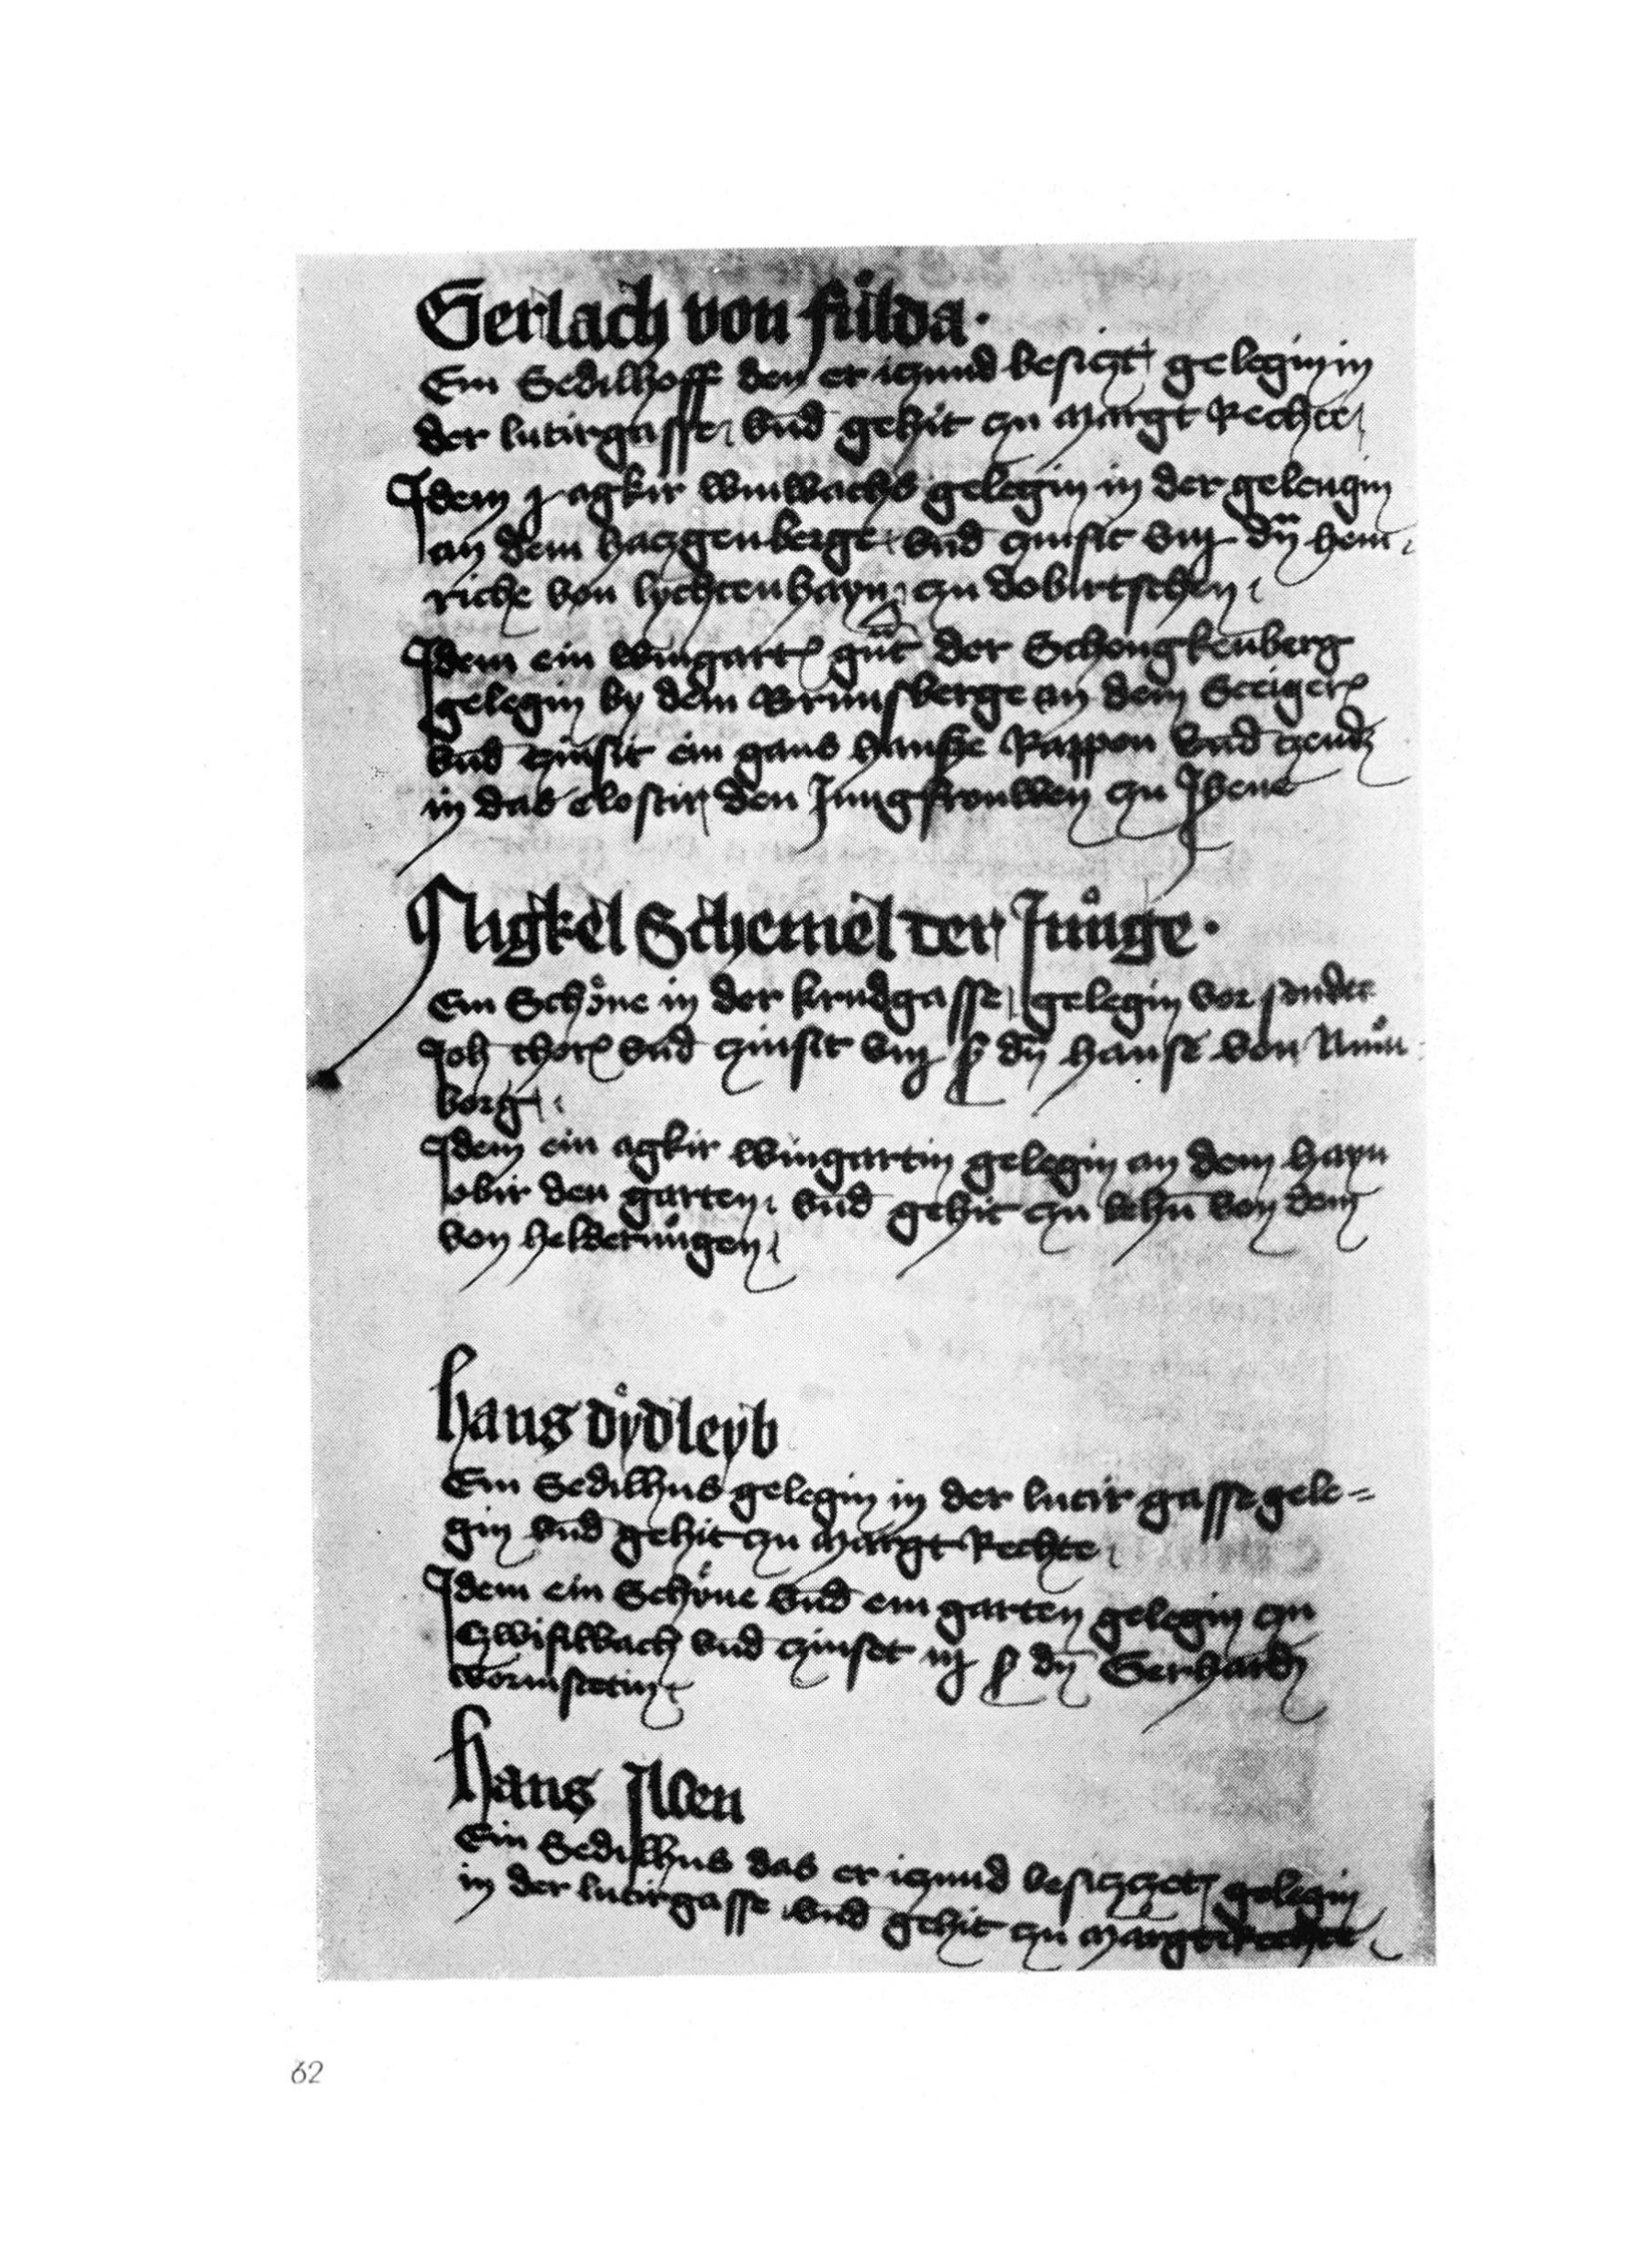 Gerlach von fůlda.
Ein Sedilhoff den er iczund besiczt gelegin in
der lutirgasse vnd gehit czu Margt Rechte
Idem j agkir winwachs gelegin in der gelengin
an dem haczgenberge vnd czinsit viij dn̄ hein
riche von lychtenhayn czu dobirtschen
Idem ein wingartē gnt der Schongkenberg
gelegin by dem Brunsberge an dem Steigerē
vnd czinsit ein gans hansße Rappen vnd czend
in das clostir den Jungfrouwen czu Ihene
Nigkel Schemel der Junge.
Ein Schöne in der krudgasse gelegin vor sender
Joh thorē vnd czinsit viij ꝓ dn̄ hanse von Nuͦn
borg
Idem ein agkir wingartin gelegin an dem hayn
obir den garten vnd gehit czu lehn von dem
von heldrungen
hans dydleyb
Ein Sedilhus gelegin in der lutir gasse gele=
gin vnd gehit czu Margt Rechte
Idem ein Schöne vnd ein garten gelegin czu
Czwifilbach vnd czinset iij ꝓ dn̄ Gerhard
wormstetin
hans Ilben
Ein Sedilhus das er iczund besiczczet gelegin
in der lutirgasse vnd gehit czu Margt Rechte
62